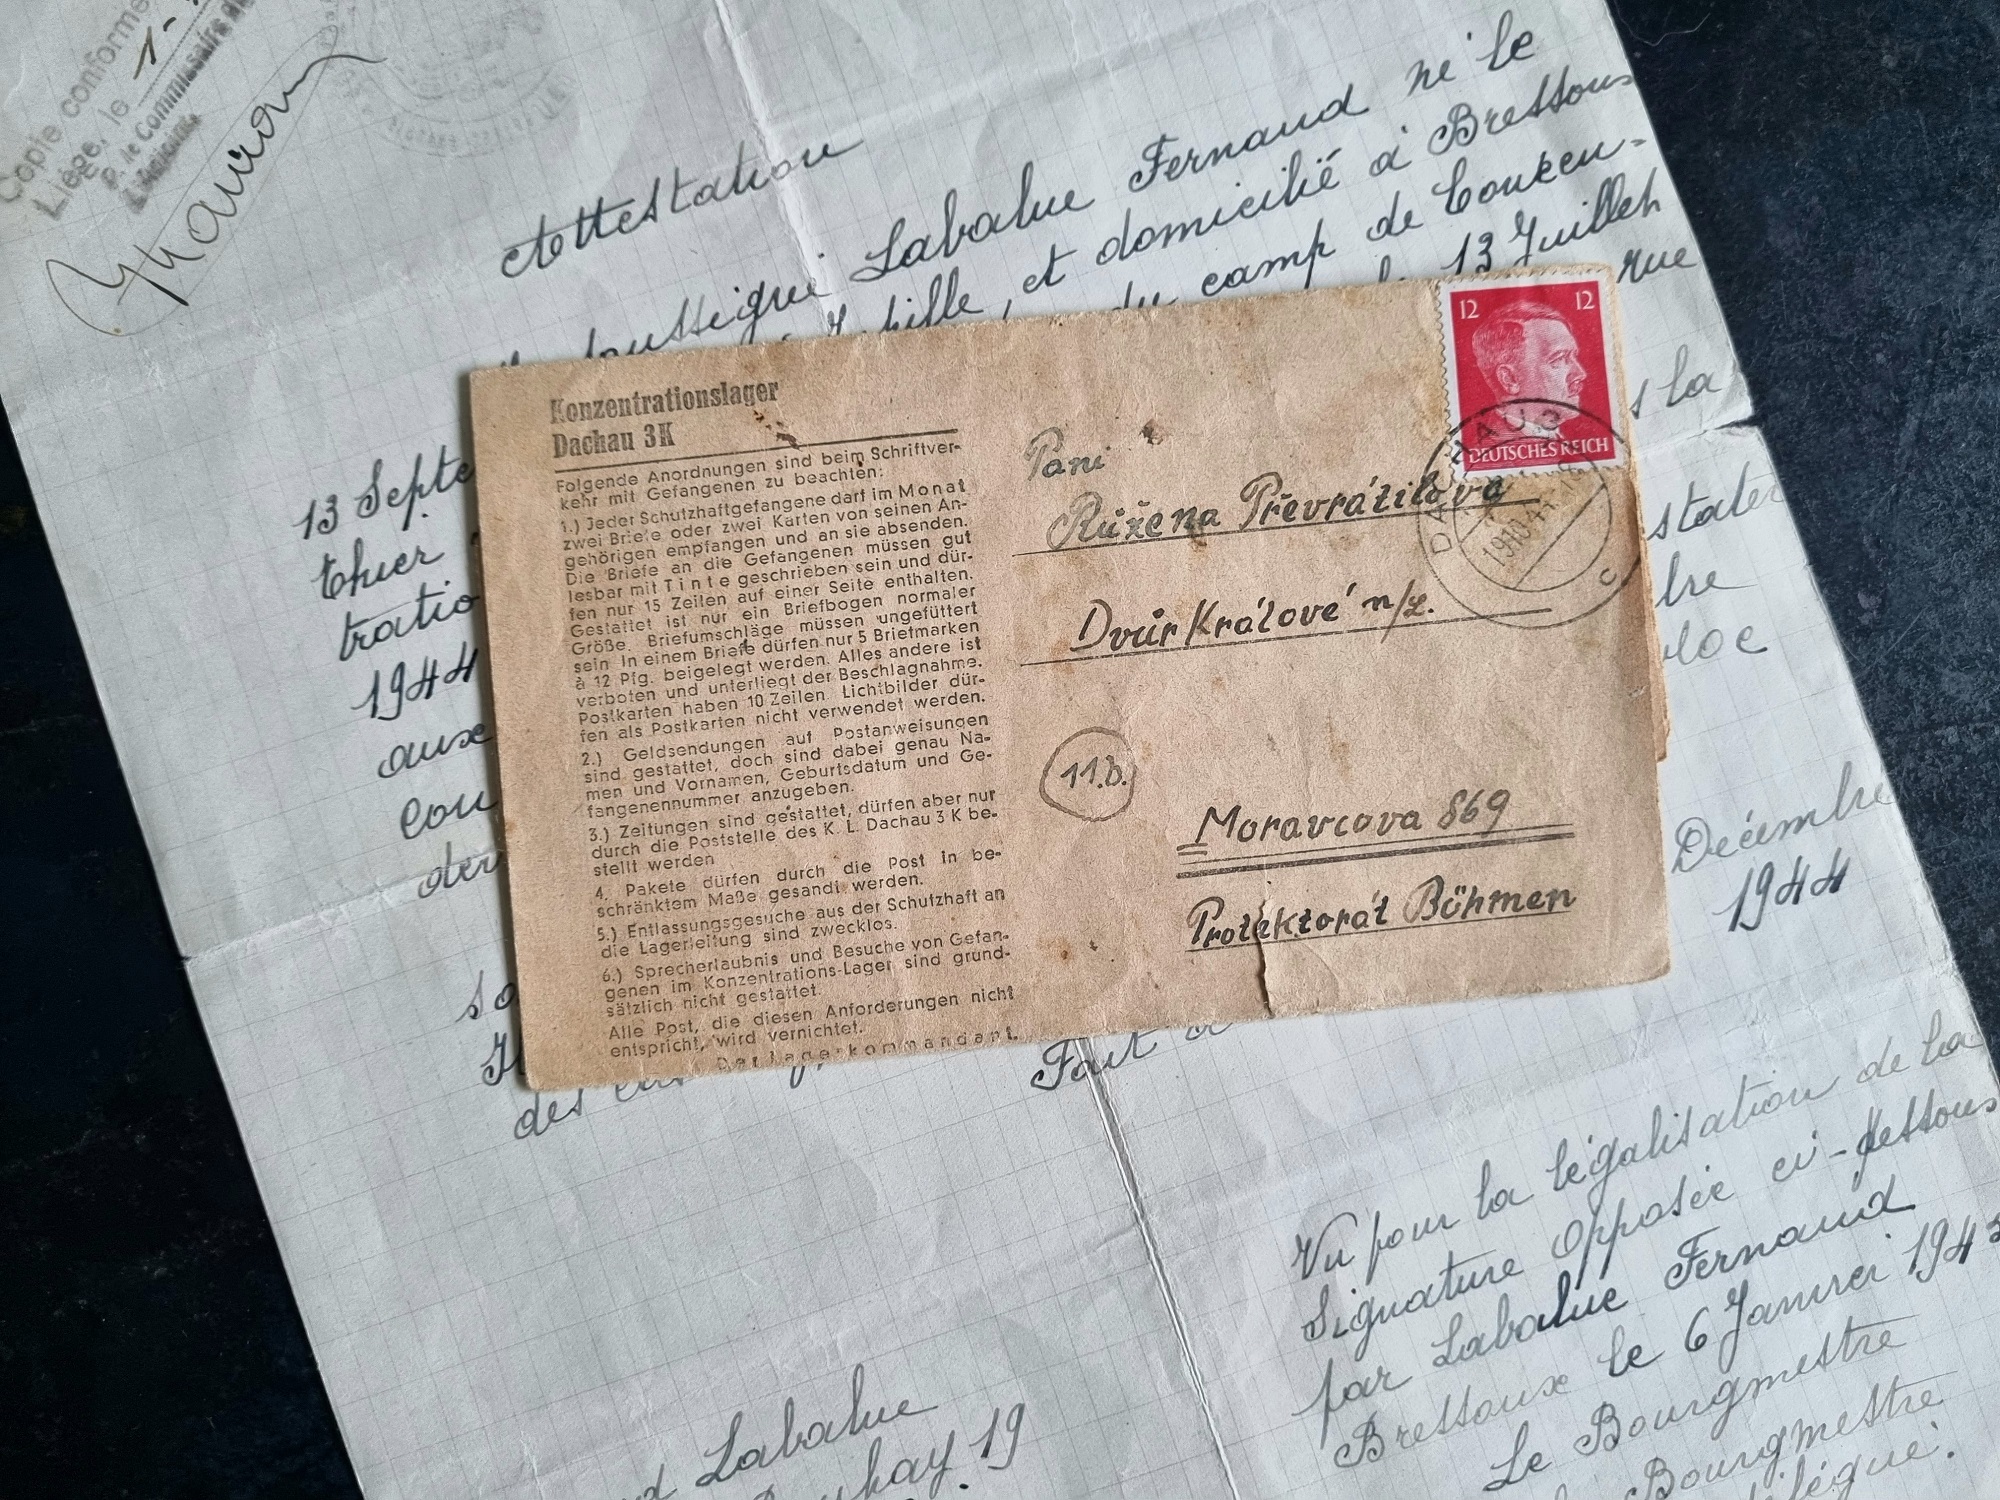 Copie conforme
Liège, le 1-
P. le Commissaire
Attestation
Labalue Fernand né le
et domicilié à Bressoux
du camp de
13 Juillet
rue
la
13 Septe
1944
aux
cou
der
Décembre
1944
des
Fait à
Vu pour la légalisation de la
Signature opposée ci-dessous
par Labalue Fernand
Bressoux le 6 Janvier 194
Le Bourgmestre
Bourgmestre
Labalue
19
Konzentrationslager
Dachau 3K
Folgende Anordnungen sind beim Schriftver-
kehr mit Gefangenen zu beachten:
1.) Jeder Schutzhaftgefangene darf im Monat
zwei Briefe oder zwei Karten von seinen An-
gehörigen empfangen und an sie absenden.
Die Briefe an die Gefangenen müssen gut
lesbar mit Tinte geschrieben sein und dür-
fen nur 15 Zeilen auf einer Seite enthalten.
Gestattet ist nur ein Briefbogen normaler
Größe. Briefumschläge müssen ungefüttert
sein In einem Briefe dürfen nur 5 Briefmarken
à 12 Pfg. beigelegt werden. Alles andere ist
verboten und unterliegt der Beschlagnahme.
Postkarten haben 10 Zeilen. Lichtbilder dür-
fen als Postkarten nicht verwendet werden.
2.) Geldsendungen auf Postanweisungen
sind gestattet, doch sind dabei genau Na-
men und Vornamen, Geburtsdatum und Ge-
fangenennummer anzugeben.
3.) Zeitungen sind gestattet, dürfen aber nur
durch die Poststelle des K. L. Dachau 3 K be-
stellt werden
4. Pakete dürfen durch die Post in be-
schränktem Maße gesandt werden.
5.) Entlassungsgesuche aus der Schutzhaft an
die Lagerleitung sind zwecklos.
6.) Sprecherlaubnis und Besuche von Gefan-
genen im Konzentrations-Lager sind grund-
sätzlich nicht gestattet.
Alle Post, die diesen Anforderungen nicht
entspricht, wird vernichtet.
Der Lagerkommandant.
12 12
DEUTSCHES REICH
DACHAU 3
19.10.44
c
Paní
Růžena Převrátilová
Dvůr Králové n/L.
11.b.
Moravcova 869
Protektorát Böhmen